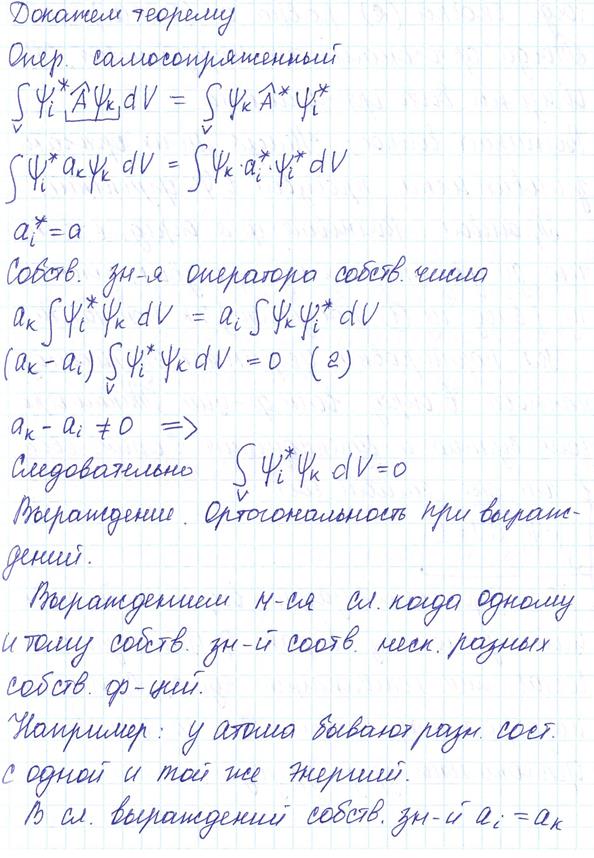 Докажем теорему
Опер. самосопряженный
∫_V ψ_i^* Â ψ_k dV = ∫_V ψ_k Â^* ψ_i^*
∫ ψ_i^* a_k ψ_k dV = ∫ ψ_k · a_i^* · ψ_i^* dV
a_i^* = a
Собств. зн-я оператора собств. числа
a_k ∫ ψ_i^* ψ_k dV = a_i ∫ ψ_k ψ_i^* dV
(a_k - a_i) ∫_V ψ_i^* ψ_k dV = 0 (2)
a_k - a_i ≠ 0 =>
Следовательно ∫_V ψ_i^* ψ_k dV = 0
Выраждение. Ортогональность при выраж-
дений.
Выраждением н-ся сл. когда одному
и тому собств. зн-й соотв. неск. разных
собств. ф-ций.
Например: у атома бывают разн. сост.
с одной и той же энергий.
В сл. выраждений собств. зн-й a_i = a_k